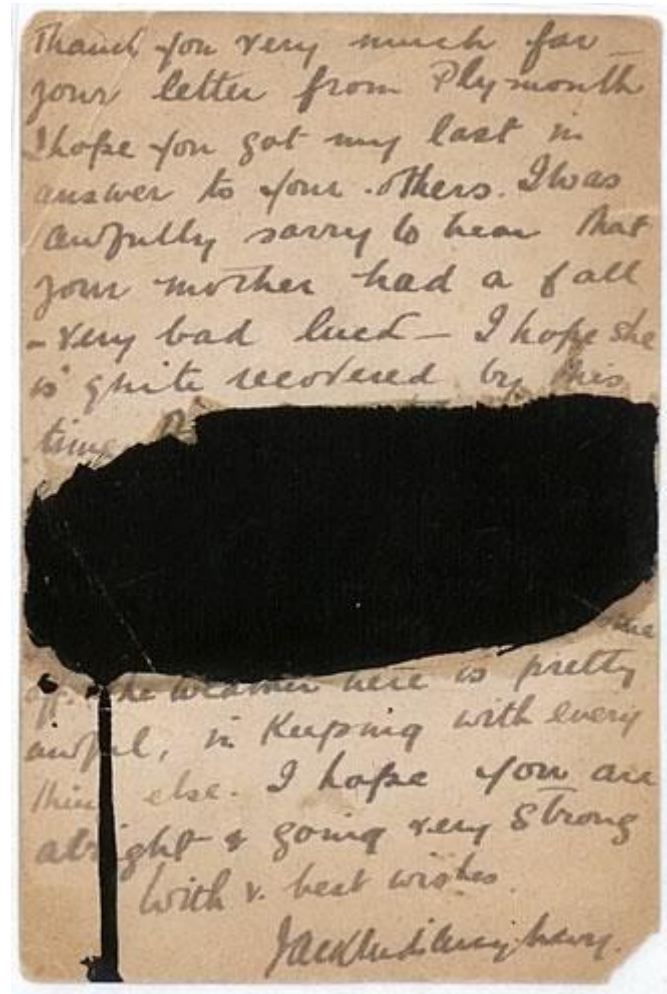 Thank you very much for
your letter from Plymouth
I hope you got my last in
answer to your others. I was
awfully sorry to hear that
your mother had a fall
- very bad luck - I hope she
is quite recovered by this
time
off. The weather here is pretty
awful, in keeping with every
thing else. I hope you are
alright & going very strong
With v. best wishes.
Jack